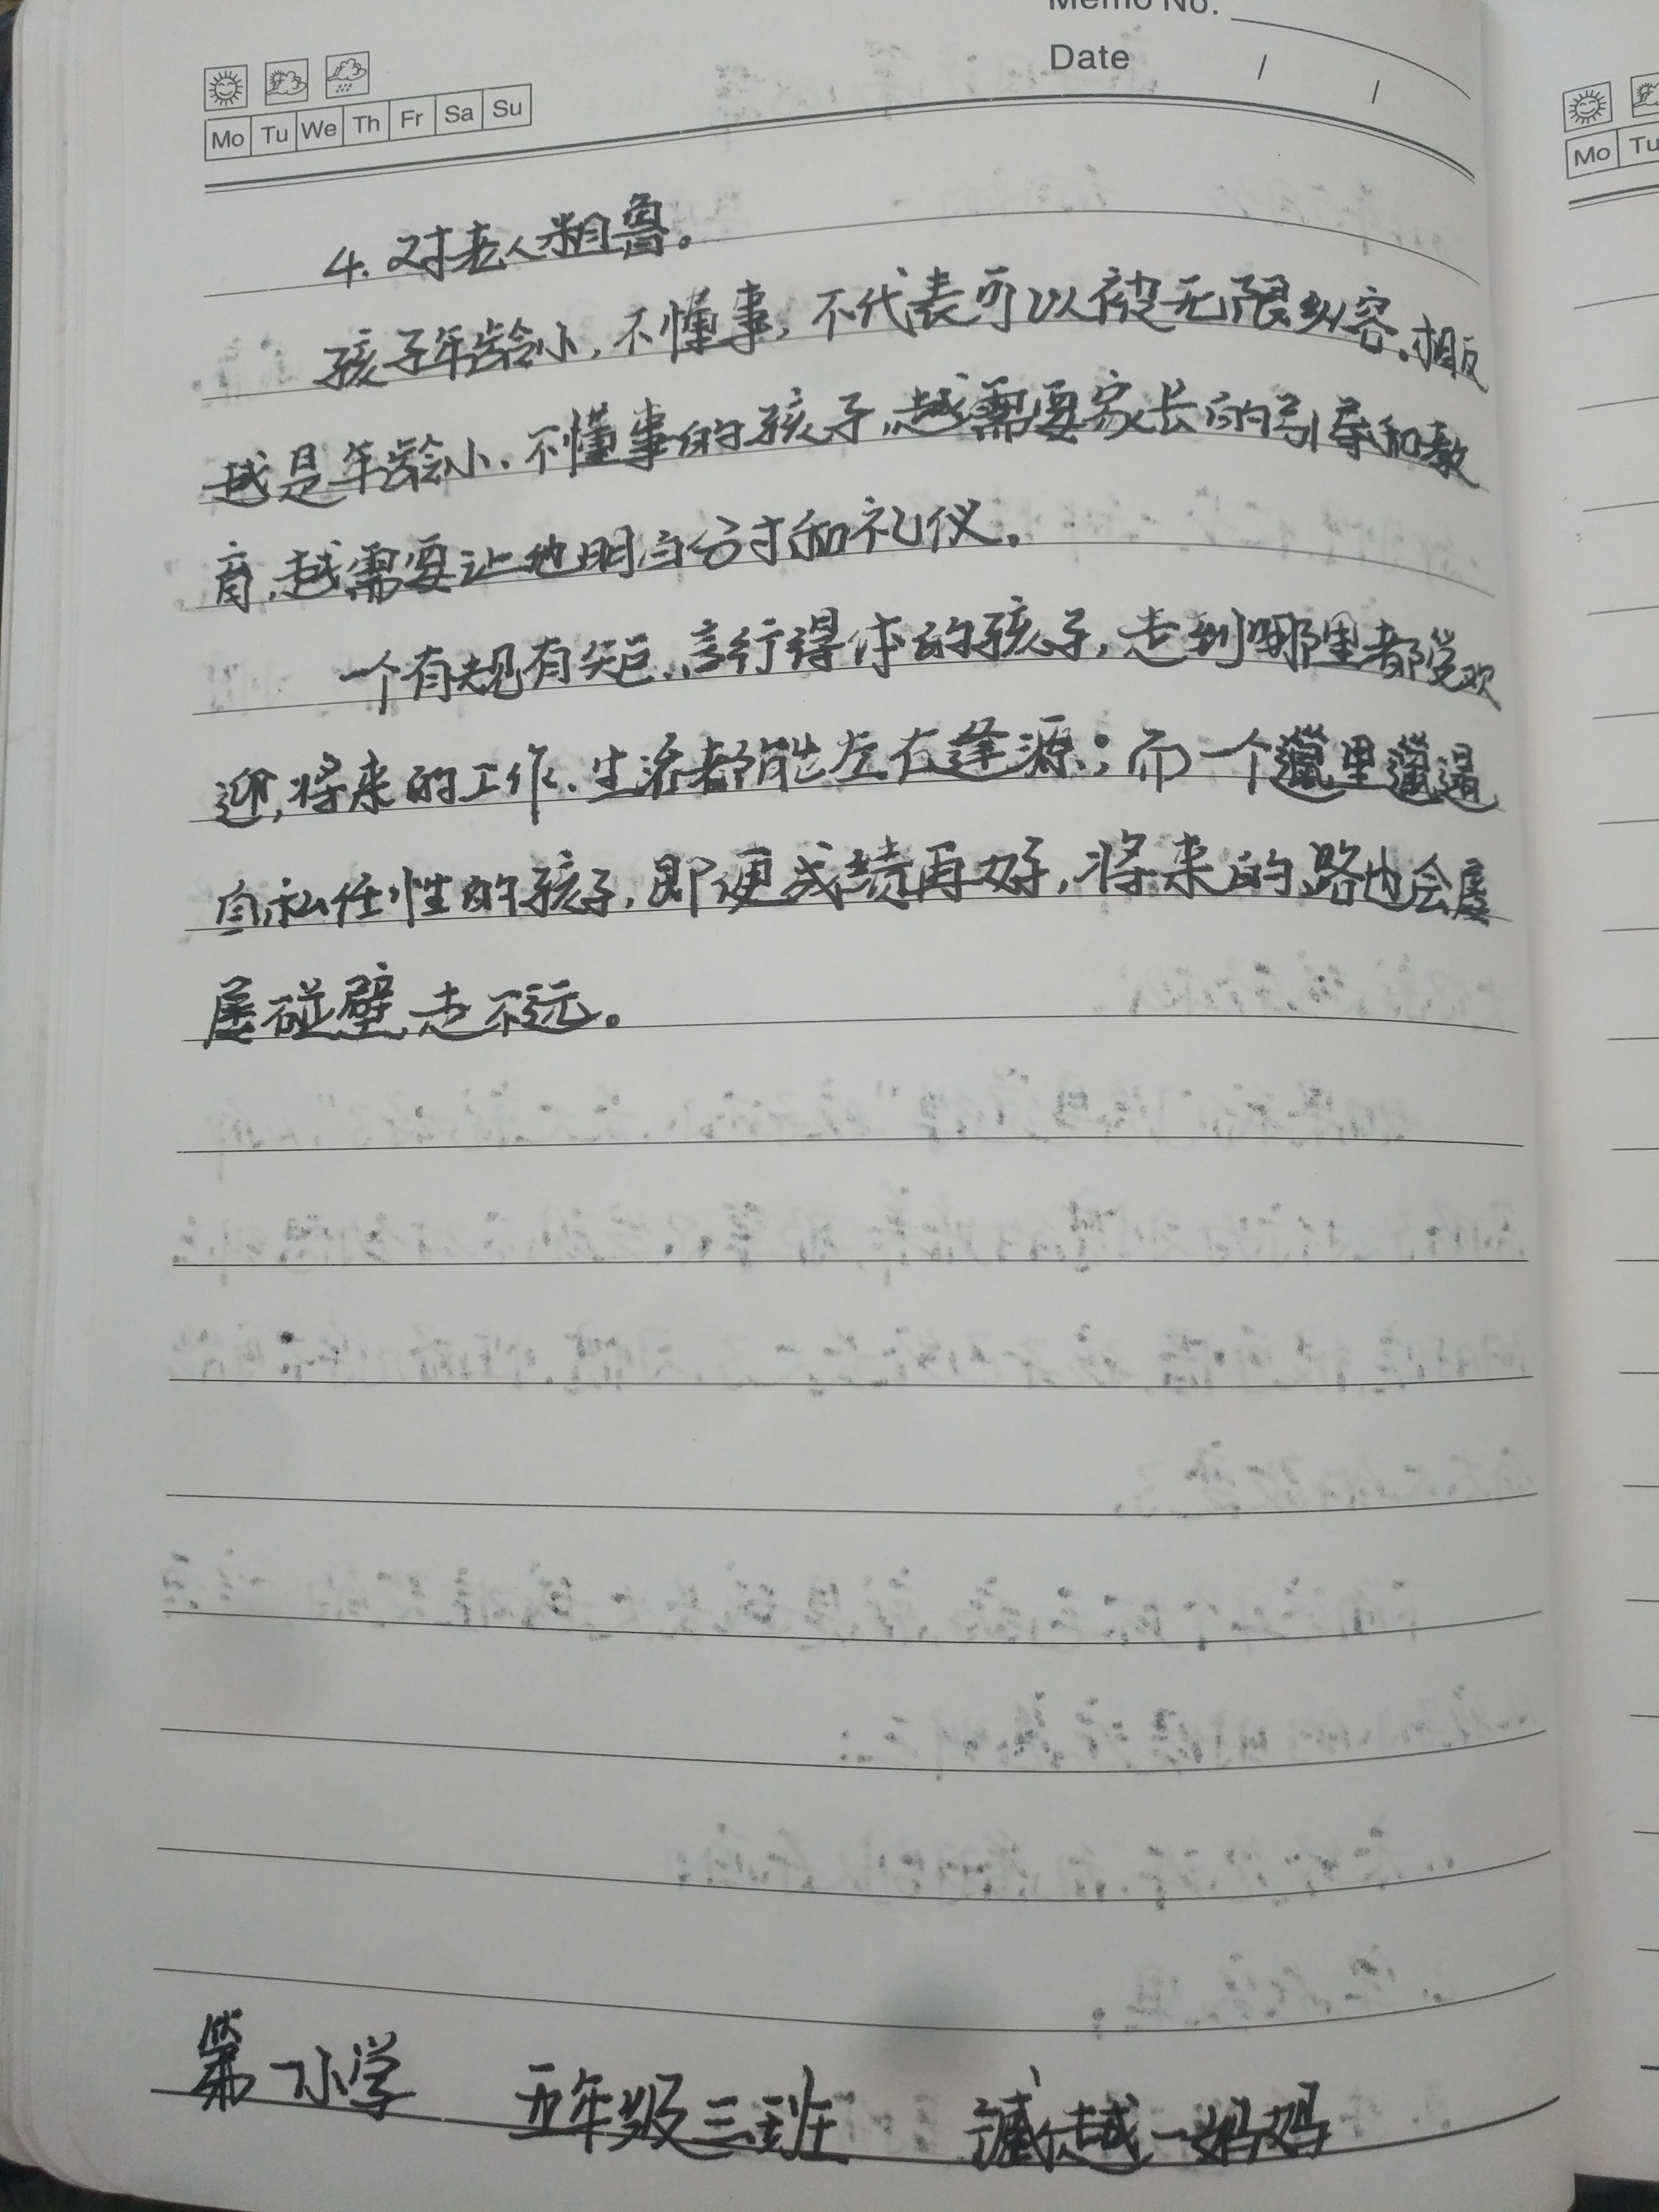 Memo No.
Date / /
Mo Tu We Th Fr Sa Su
Mo Tu
4. 对老人粗鲁。
孩子年龄小,不懂事,不代表可以被无限纵容,相反
越是年龄小、不懂事的孩子,越需要家长的引导和教
育,越需要让他明白分寸和礼仪。
一个有规有矩、言行得体的孩子,走到哪里都受欢
迎,将来的工作、生活都能左右逢源;而一个邋里邋遢
自私任性的孩子,即便成绩再好,将来的路也会屡
屡碰壁,走不远。
第一小学 五年级三班 越一妈妈